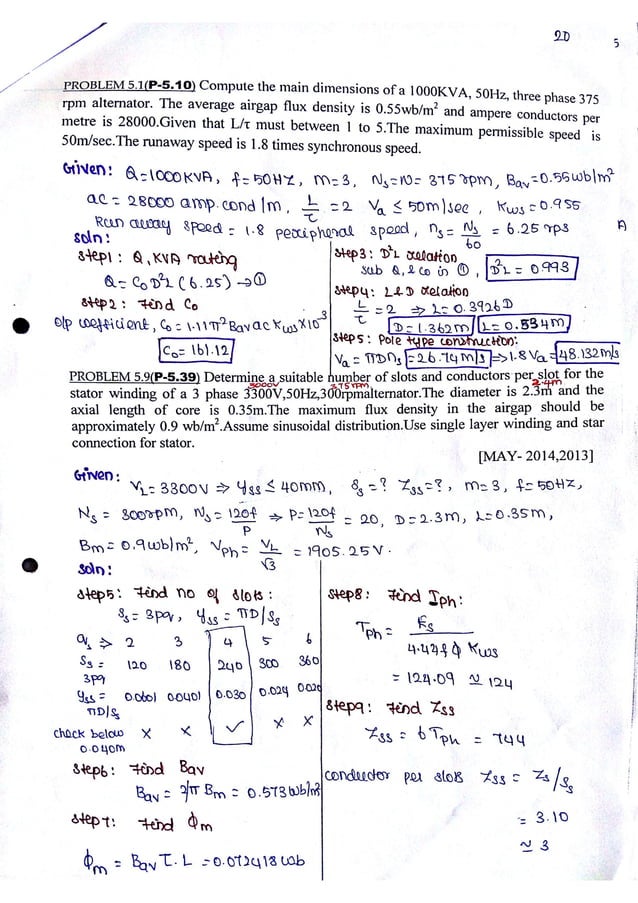 2D
5
PROBLEM 5.1(P-5.10) Compute the main dimensions of a 1000KVA, 50Hz, three phase 375
rpm alternator. The average airgap flux density is 0.55wb/m² and ampere conductors per
metre is 28000.Given that L/τ must between 1 to 5.The maximum permissible speed is
50m/sec.The runaway speed is 1.8 times synchronous speed.
Given: Q=1000KVA, f=50HZ, m=3, Ns=N= 375 rpm, Bav=0.55wb/m²
ac = 28000 amp.cond/m, L/τ =2 Va ≤ 50m/sec, Kws=0.955
Run away speed = 1.8 peripheral speed, ns = Ns/60 = 6.25 rps
A
soln:
step1: Q, KVA rating
Q = C0D²L (6.25) →①
step2: Find C0
o/p coefficient, C0 = 1.11π² Bav ac Kws×10⁻³
C0= 161.12
step3: D²L relation
sub Q, & C0 in ①, D²L = 0.993
step4: L & D relation
L/τ = 2 ⇒ L= 0.3926D
D= 1.362m L= 0.534m
step5: Pole type construction:
Va = πDns = 26.74 m/s ⇒1.8 Va = 48.132m/s
PROBLEM 5.9(P-5.39) Determine a suitable number of slots and conductors per slot for the
3000V 375 rpm 2.4m
stator winding of a 3 phase 3300V,50Hz,300rpmalternator.The diameter is 2.3m and the
axial length of core is 0.35m.The maximum flux density in the airgap should be
approximately 0.9 wb/m².Assume sinusoidal distribution.Use single layer winding and star
connection for stator.
[MAY- 2014,2013]
Given:
VL= 3300V ⇒ yss ≤ 40mm, Ss=? Zss=?, m=3, f=50HZ,
Ns = 300rpm, Ns= 120f/P ⇒ P= 120f/Ns = 20, D=2.3m, L=0.35m,
Bm= 0.9wb/m², Vph = VL/√3 = 1905.25V.
soln:
step5: Find no of slots:
Ss= 3pq, yss = πD/Ss
qs ⇒ 2 3 4 5 6
Ss= 3pq 120 180 240 300 360
yss = πD/Ss 0.0601 0.0401 0.030 0.024 0.020
check below 0.040m X X ✓ X X
step6: Find Bav
Bav = 2/π Bm = 0.573wb/m²
step7: Find ϕm
ϕm = Bav τ. L = 0.072418 wb
step8: Find Tph:
Tph = Es/4.44f ϕ Kws
= 124.09 ≃ 124
step9: Find Zss
Zss = 6 Tph = 744
conductor per slots Zss = Zs/Ss
= 3.10
≃ 3